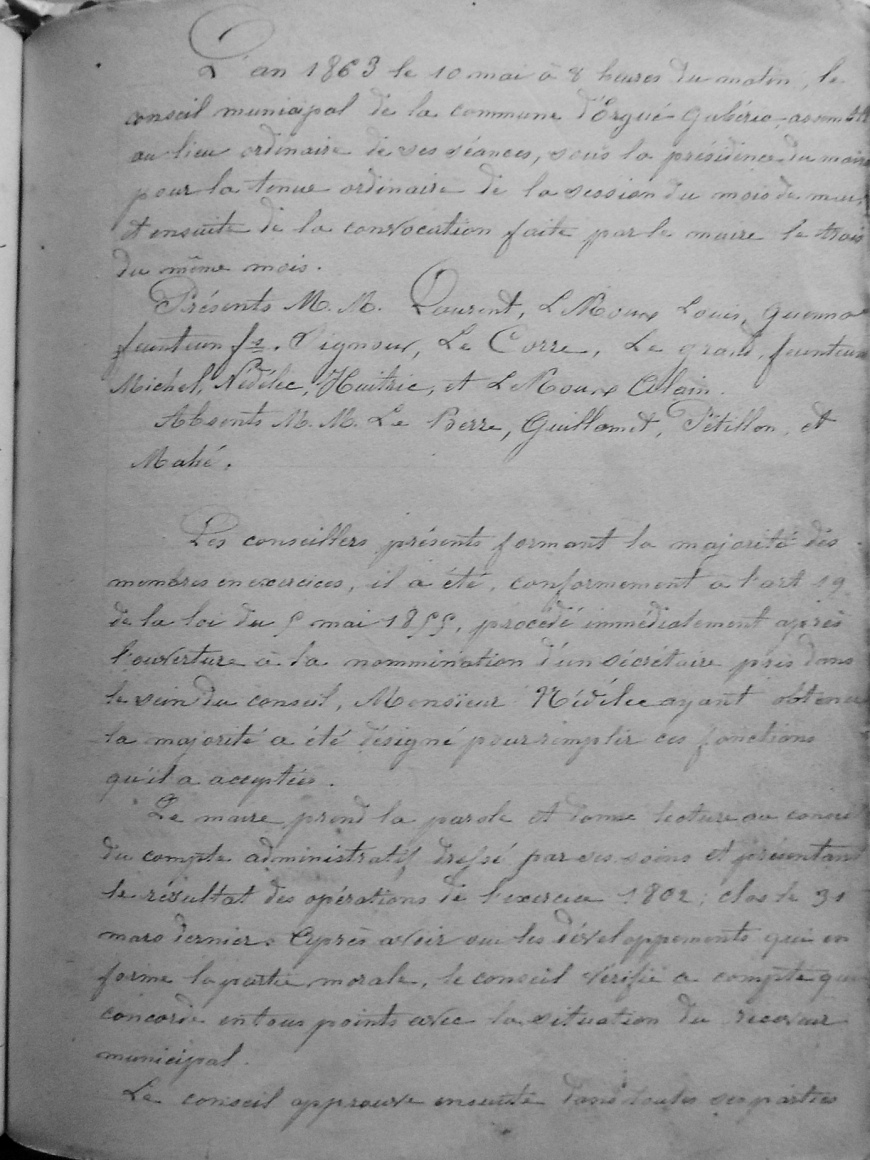 L'an 1863 le 10 mai à 8 heures du matin, le
conseil municipal de la commune d'Ergué-Gabéric, assemblé
au lieu ordinaire de ses séances, sous la présidence du maire
pour la tenue ordinaire de la session du mois de mai,
et ensuite de la convocation faite par le maire le trois
du même mois.
Présents M. M. Laurent, Le Roux Louis,
feunteun fs. Signour, Le Corre, Le grand, feunteun
Michel, Nédélec, Huitric, et Le Roux Alain.
Absents M. M. Le Berre, Guillamet, Pétillon, et
Mahé.
Les conseillers présents formant la majorité des
membres en exercices, il a été, conformement a l'art 19
de la loi du 5 mai 1855, procédé immédiatement après
l'ouverture à la nommination d'un sécrétaire pris dans
le sein du conseil, Monsieur Nédélec ayant obtenu
la majorité a été désigné pour remplir ces fonctions
qu'il a acceptées.
Le maire prend la parole et donne lecture au conseil
du compte administratif dressé par ses soins et présentant
le résultat des opérations de l'exercice 1862, clos le 31
mars dernier. Après avoir oui les développements qui en
forme la partie morale, le conseil vérifie ce compte qui
concorde en tous points avec la situation du receveur
municipal.
Le conseil approuve ensuite dans toutes ses parties